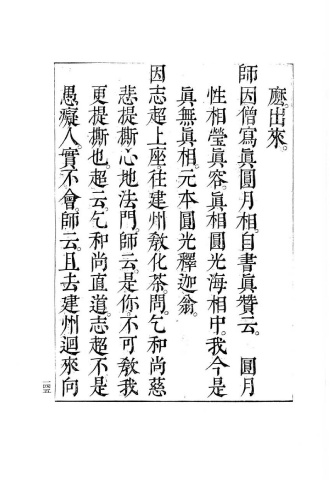 麽。出來。
師因僧寫眞圓月相。自書眞贊云。　圓月
性相瑩眞容。眞相圓光海相中。我今是
眞無眞相。元本圓光釋迦翁。
因志超上座往建州敎化茶。問。乞和尚慈
悲提撕心地法門。師云。是你。不可敎我
更提撕也。超云。乞和尚直道。志超不是
愚癡人。實不會。師云。且去建州迴來。向
一四五